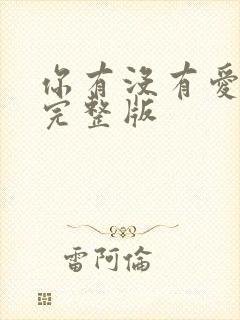 你有没有爱
完整版
雷阿倫